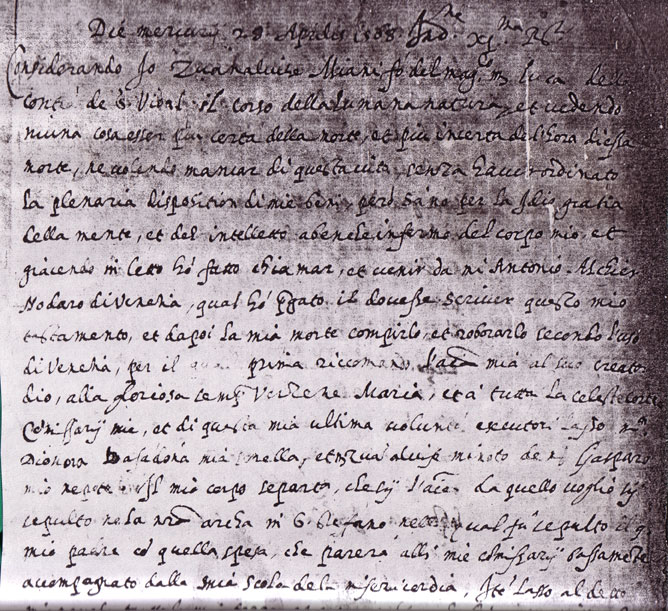 Die mercurij 28 Aprilis 1588 Ind.ne XI.ma R.ti
Considerando Io Zuanaluise Miani fo del mag.co m luca del
conti de S Vidal il corso della humana natura, et vedendo
niuna cosa esser piu certa della morte, et piu incerta de l'hora di essa
morte, ne volendo mancar di questa vita, senza haver ordinato
la plenaria disposition di miei beni, però sano per la Idio gratia
della mente, et del intelletto abenche infermo del corpo mio, et
giacendo in letto hò fatto chiamar, et venir da mi Antonio Alchier
Nodaro di Venetia, qual hò pgato il dovesse scriver questo mio
testamento, et dapoi la mia morte compirlo, et roborarlo secondo l'uso
di Venetia, per il prima riccomando l'aīa mia al suo creator
dio, alla gloriosa semp Verzene Maria, et à tutta la celeste corte
Cōmissarij mie, et di questa mia ultima voluntà executori lasso m.a
Dionora Basadona mia, et m Zuaaluise minoto de m Gasparo
mio nepote Il mio corpo separato, che sij l'aīa da quello voglio sij
sepulto ne la nrā archa in S. Stefano nella qual fu sepulto il q.
mio padre cō quella spesa, che parerà alli mie cōmissarij bassamēte
acompagnato dalla mia scola de la misericordia, Itē lasso al detto